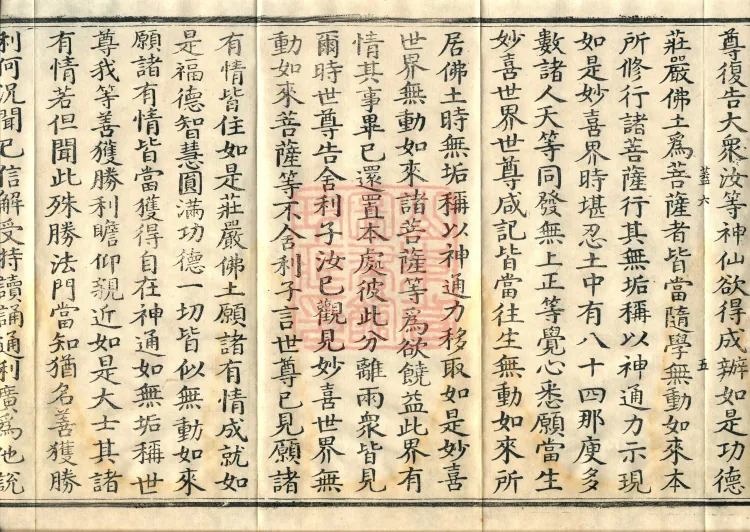 尊復告大衆汝等神仙欲得成辦如是功德
蓋六
五
莊嚴佛土爲菩薩者皆當隨學無動如來本
所修行諸菩薩行其無垢稱以神通力示現
如是妙喜界時堪忍土中有八十四那庾多
數諸人天等同發無上正等覺心悉願當生
妙喜世界世尊咸記皆當往生無動如來所
居佛土時無垢稱以神通力移取如是妙喜
世界無動如來諸菩薩等爲欲饒益此界有
情其事畢已還置本處彼此分離兩衆皆見
爾時世尊告舍利子汝已觀見妙喜世界無
動如來菩薩等不舍利子言世尊已見願諸
有情皆住如是莊嚴佛土願諸有情成就如
是福德智慧圓滿功德一切皆似無動如來
願諸有情皆當獲得自在神通如無垢稱世
尊我等善獲勝利瞻仰親近如是大士其諸
有情若但聞此殊勝法門當知猶名善獲勝
利何況聞已信解受持讀誦通利廣爲他說